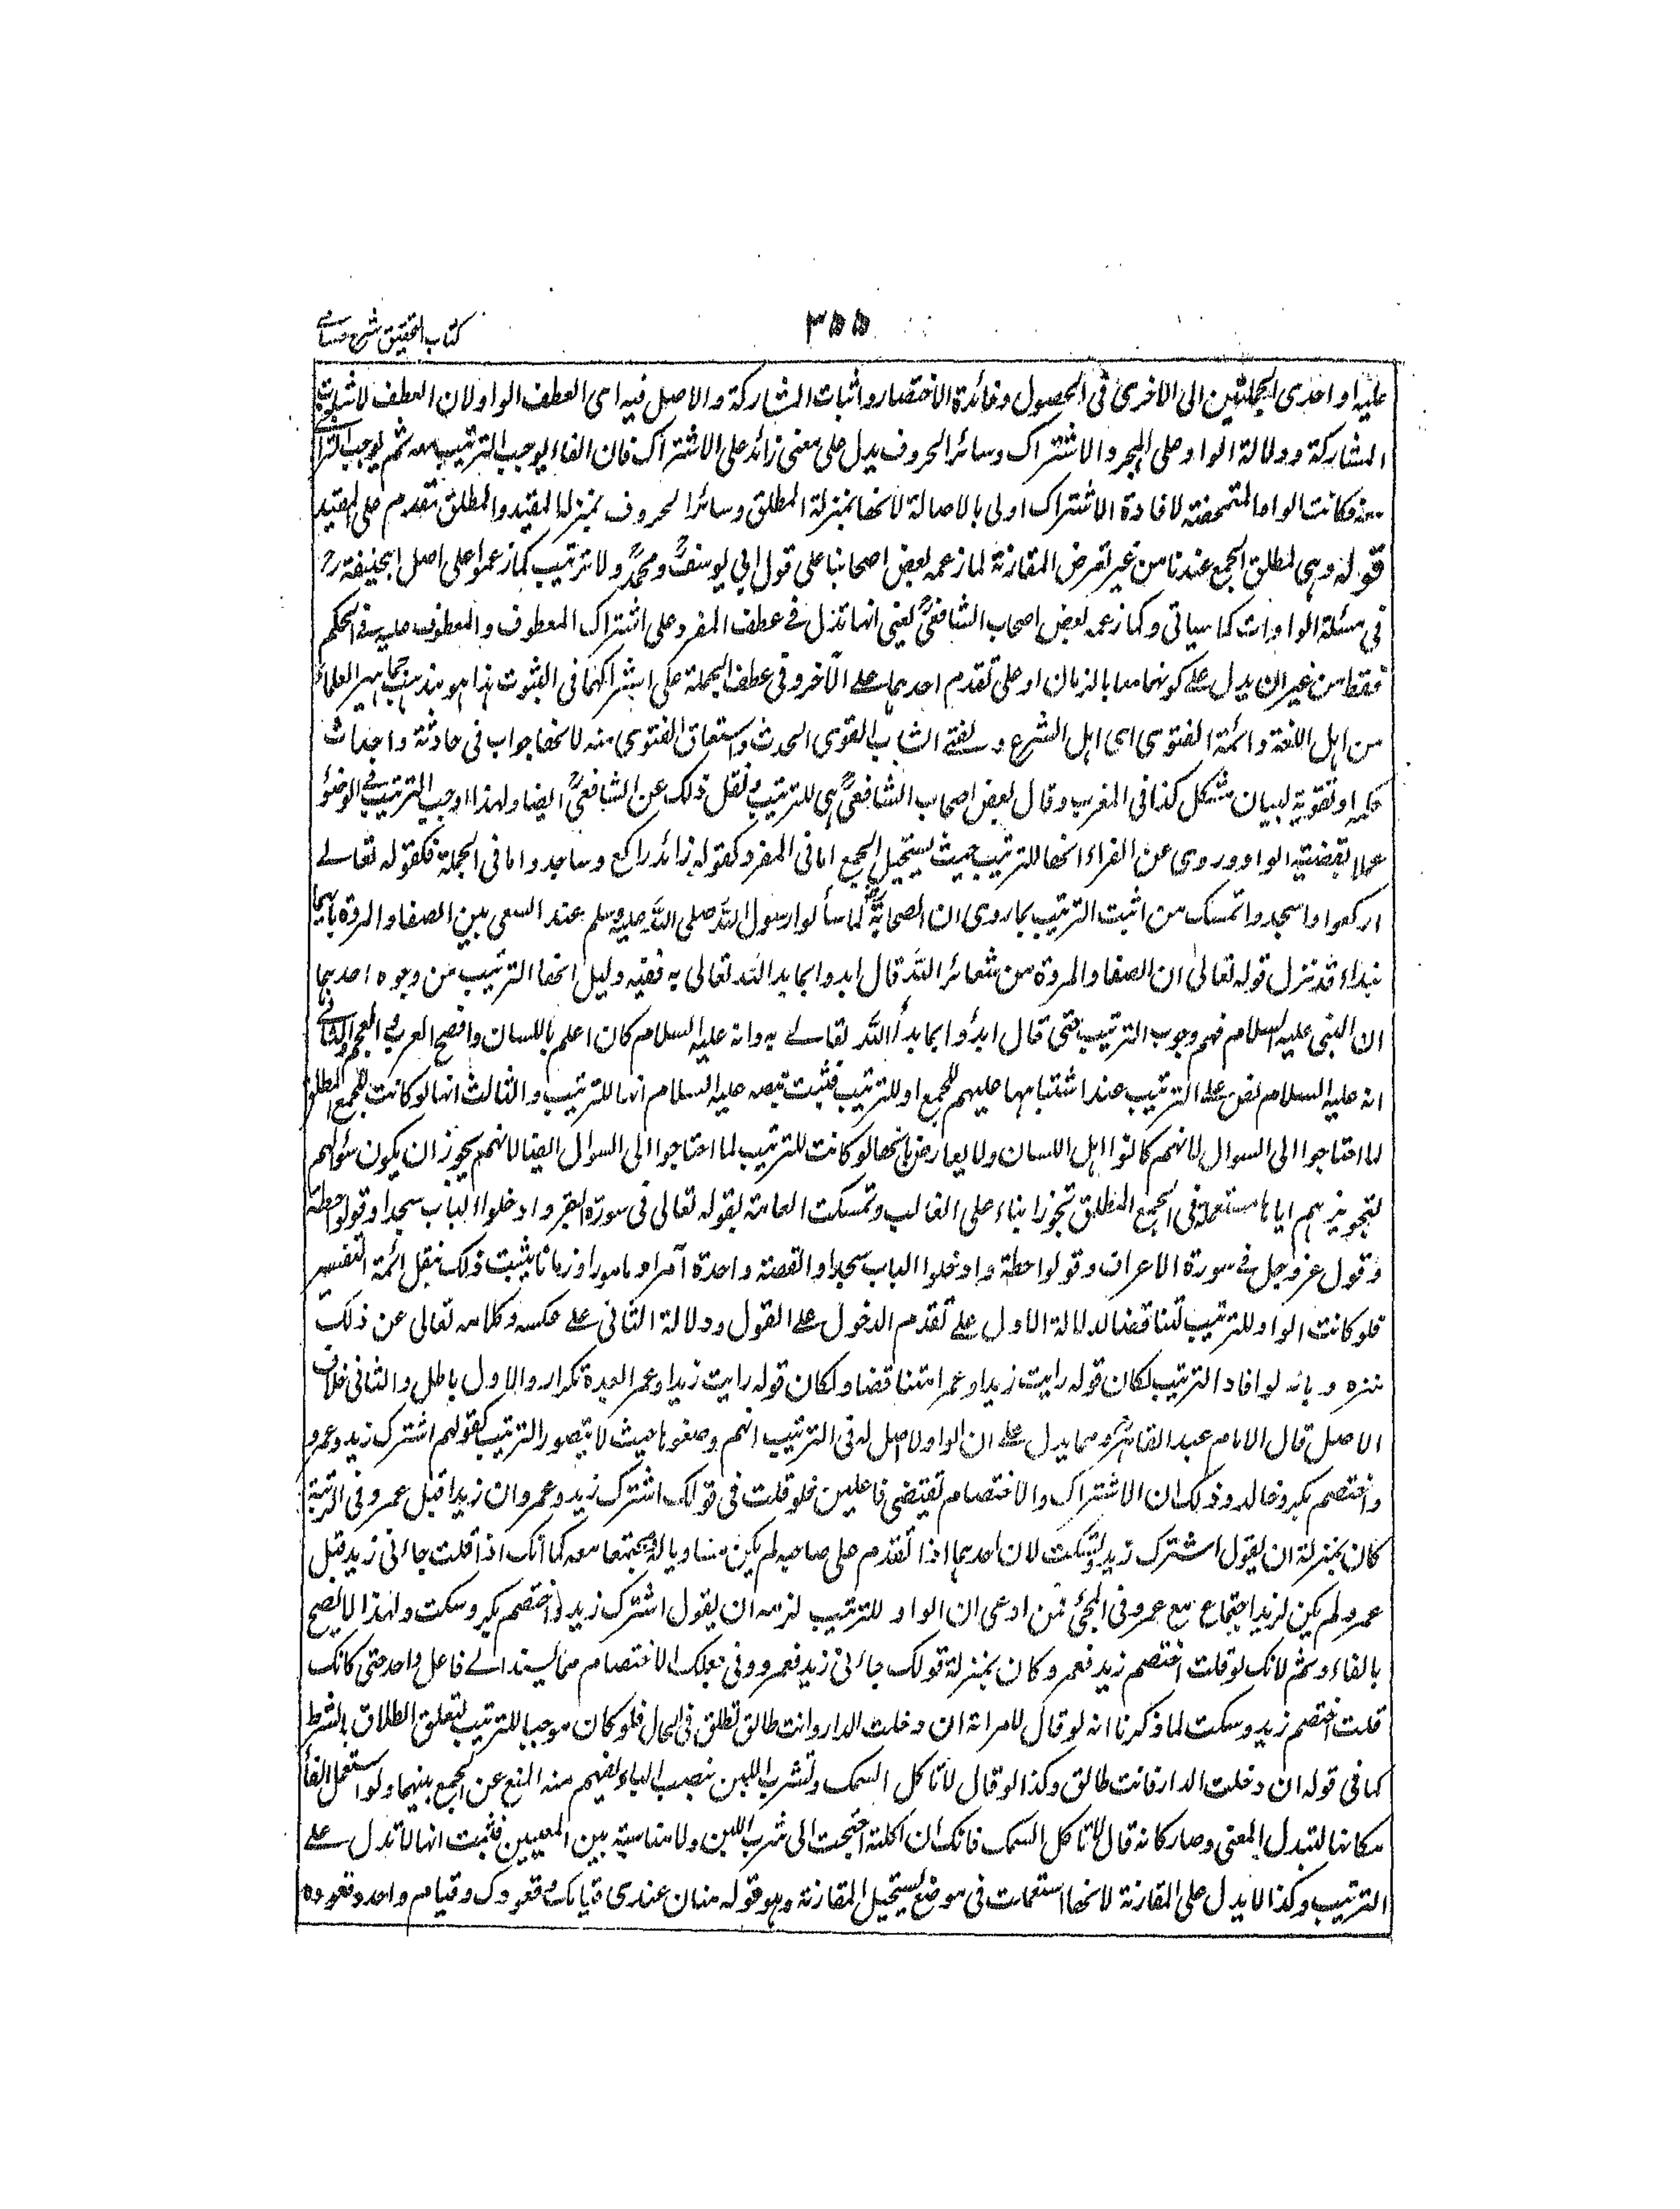 كتاب التحقيق شرح حسامي
٣٥٥
عليه او احدى الجملتين الى الاخرى فى الحصول وفائدة الاختصار واثبات المشاركة والاصل فيه اى العطف الواو لان العطف لاثبات
المشاركة ودلالة الواو على مجرد الاشتراك وسائر الحروف يدل على معنى زائد على الاشتراك فان الفاء يوجب الترتيب معه ثم يوجب التراخى
معه فكانت الواو متمحضة لافادة الاشتراك اولى بالاصالة لانها بمنزلة المطلق وسائر الحروف بمنزلة المقيد والمطلق مقدم على المقيد
قوله وهى لمطلق الجمع عندنا من غير تعرض المقارنة لما زعمه بعض اصحابنا على قول ابى يوسفؒ ومحمدؒ ولا ترتيب كما زعموا على اصل ابيحنيفة رح
فى مسئلة الواوات كما سياتى وكما زعمه بعض اصحاب الشافعىؒ يعنى انها تدل فے عطف المفرد على اشتراك المعطوف والمعطوف عليه فى الحكم
فقط من غير ان يدل علے كونهما معا بالزمان او على تقدم احدهما علے الآخر وفى عطف الجملة على اشتراكهما فى الثبوت هذا هو مذهب جماهير العلماء
من اهل اللغة وائمة الفتوى اى اهل الشرع و الفتے الشاب القوى الحدث واشتقاق الفتوى منه لانها جواب فى حادثة واحداث
حكم او تقوية لبيان مشكل كذا فى المغرب وقال بعض اصحاب الشافعىؒ هى للترتيب ونقل ذلك عن الشافعىؒ ايضا ولهذا اوجب الترتيب فے الوضوء
عملا بقضية الواو وروى عن الفراء انها للترتيب حيث يستحيل الجمع اما فى المفرد كقوله زائد راكع وساجد واما فى الجملة فكقوله تعالے
اركعوا واسجدوا تمسك من اثبت الترتيب بما روى ان الصحابةؓ لما سألوا رسول الله صلى الله عليه وسلم عند السعى بين الصفا والمروة بايهما
نبداء قد نزل قوله تعالى ان الصفا والمروة من شعائر الله قال ابدوا بما بدا الله تعالى به ففيه دليل انها الترتيب من وجوه احدها
ان النبى عليه السلام فهم وجوب الترتيب حتى قال ابدؤا بما بدأ الله تعالے به وانه عليه السلام كان اعلم باللسان وافصح العرب والعجم والثانے
انه عليه السلام نص علے الترتيب عند اشتباهها عليهم للجمع او للترتيب فثبت بنصه عليه السلام انها للترتيب والثالث انها لو كانت للجمع المطلق
لما احتاجوا الى السوال لانهم كانوا اهل اللسان ولا يعارض بانها لو كانت للترتيب لما احتاجوا الى السوال ايضا لانهم يجوز ان يكون سؤالهم
لتجويزهم اياها مستعملة فى الجمع المطلق تجوزا بناء على الغالب وتمسكت العامة بقوله تعالى فى سورة البقر وادخلوا الباب سجدا وقولوا حطة
وقول عز وجل فے سورة الاعراف وقولوا حطة وادخلوا الباب سجدا والقصة واحدة آمرا ومامورا وزمانا يثبت ذلك بنقل ائمة التفسير
فلو كانت الواو للترتيب لتناقضا لدلالة الاول علے تقدم الدخول علے القول ودلالة الثانى علے عكسه وكلامه تعالى عن ذلك
منزه وبانه لو افاد الترتيب لكان قوله رايت زيدا وعمرا متناقضا ولكان قوله رايت زيدا وعمرا بعده تكرار والاول باطل والثانى خلاف
الاصل قال الامام عبد القاهرؒ ومما يدل علے ان الواو لا اصل له فى الترتيب انهم وضعوها حيث لا يتصور الترتيب كقولهم اشترك زيد وعمرو
واختصم بكر وخالد وذلك ان الاشتراك والاختصام يقتضى فاعلين فلو قلت فى قولك اشترك زيد وعمرو ان زيدا قبل عمرو فى الرتبة
كان بمنزلة ان يقول اشترك زيد وتسكت لان احدهما اذا تقدم على صاحبه لم يكن مساويا له ومجتمعا معه كما انك اذا قلت جاءنى زيد قبل
عمرو لم يكن لزيد اجتماع مع عمرو فى المجئ فمن ادعى ان الواو للترتيب لزمه ان يقول اشترك زيد واختصم بكر وسكت ولهذا لا يصح
بالفاء وثم لانك لو قلت اختصم زيد فعمرو كان بمنزلة قولك جاءنى زيد فعمرو وفى جعلك الاختصام مما يسند الے فاعل واحد حتى كانك
قلت اختصم زيد وسكت لما ذكرنا انه لو قال لامراته ان دخلت الدار وانت طالق تطلق فى الحال فلو كان موجبا للترتيب لتعلق الطلاق بالشرط
كما فى قوله ان دخلت الدار فانت طالق وكذا لو قال لا تاكل السمك وتشرب اللبن بنصب الباء يفهم منه المنع عن الجمع بينهما ولو استعمل الفاء
مكانها لتبدل المعنى وصار كانه قال لا تاكل السمك فانك ان اكلته احتجت الى شرب اللبن ولا مناسبة بين المعنيين فثبت انها لا تدل علے
الترتيب وكذا لا يدل على المقارنة لانها استعملت فى موضع يستحيل المقارنة وهو قوله منان عندى قيامك وقعودك وقيام واحد وقعوده